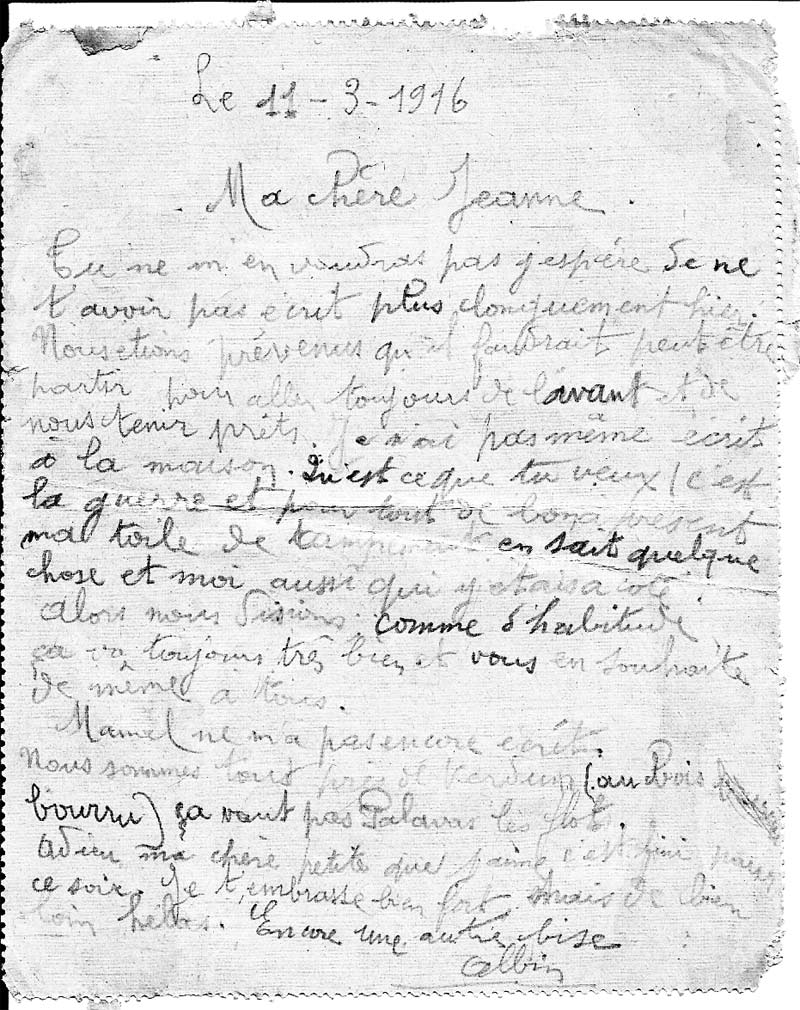 Le 11-3-1916
Ma chère Jeanne.
Tu ne m'en voudras pas j'espère de ne
t'avoir pas écrit plus longuement hier.
Nous etions prévenus qu'il faudrait peut être
partir pour aller toujours de l'avant et de
nous tenir prêts. Je n'ai pas même écrit
à la maison. Qu'est ce que tu veux c'est
la guerre et pour tout de bon à present
ma toile de campement en sait quelque
chose et moi aussi qui y etais a coté.
Alors nous disions, comme d'habitude,
ça va toujours très bien et vous en souhaite
de même a tous.
ne m'a pas encore écrit.
Nous sommes tout près de Verdun (au Bois
bourru) ça vaut pas Palavas les flots.
Adieu ma chère petite que j'aime c'est fini pour
ce soir. Je t'embrasse bien fort, mais de bien
loin helas. Encore une autre bise
Albin